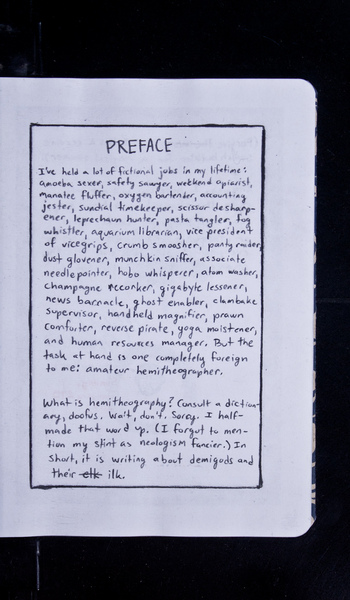 PREFACE
I've held a lot of fictional jobs in my lifetime:
amoeba sexer, safety sawyer, weekend apiarist,
manatee fluffer, oxygen bartender, accounting
jester, sundial timekeeper, scissor desharp-
ener, leprechaun hunter, pasta tangler, fog
whistler, aquarium librarian, vice president
of vicegrips, crumb smoosher, panty raider,
dust glovener, munchkin sniffer, associate
needlepointer, hobo whisperer, atom washer,
champagne recorker, gigabyte lessener,
news barnacle, ghost enabler, clambake
supervisor, handheld magnifier, prawn
comforter, reverse pirate, yoga moistener,
and human resources manager. But the
task at hand is one completely foreign
to me: amateur hemitheographer.
What is hemitheography? Consult a diction-
ary, doofus. Wait, don't. Sorry. I half-
made that word up. (I forgot to men-
tion my stint as neologism fancier.) In
short, it is writing about demigods and
their elk ilk.